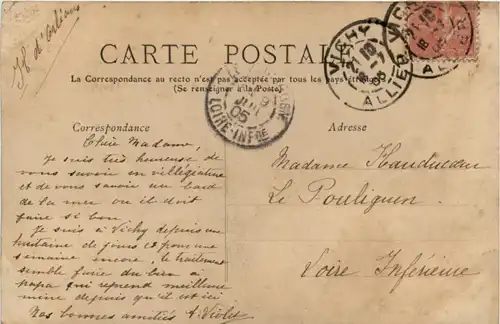 H. d'Orléans
CARTE POSTALE
La Correspondance au recto n'est pas acceptée par tous les pays étrangers
(Se renseigner à la Poste)
VICHY
ALLIER
LOIRE-INFRE
05
Correspondance
Chère Madame,
Je suis très heureuse de
vous savoir en villégiature
et de vous savoir au bord
de la mer ou il doit
faire si bon.
Je suis à Vichy depuis une
huitaine de jours et pour une
semaine encore, le traitement
semble faire du bien à
papa qui reprend meilleure
mine depuis qu'il est ici
Nos bonnes amitiés A. Violet
Adresse
Madame
Le Pouliguen
Loire Inférieure